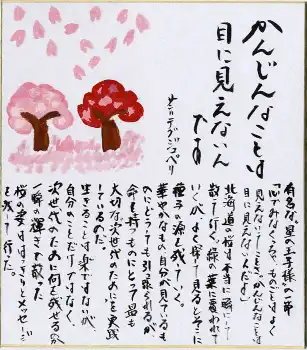 かんじんなことは
目に見えないん
です
サンテグジュペリ
有名な星の王子様の一節
「心でみなくちゃ、ものごとはよく
見えないってことさ。かんじんなことは
目に見えないんだよ」
北海道の桜は本当に一瞬にして
散って行く。緑の葉に変われて
いくが、よく探て見るとそこに
種子の源を残していく。
華やかなもの、自分が見ているも
のにどうしても引張られるが、
命を持ものにとって一番
大切な次世代のためにを実践
しているのだ。
生きることは楽ではないが、
自分のことだけではなく、
次世代のために何を残せるか
一瞬の輝きで散った
桜の姿ははっきりとメッセージ
を残して行った。